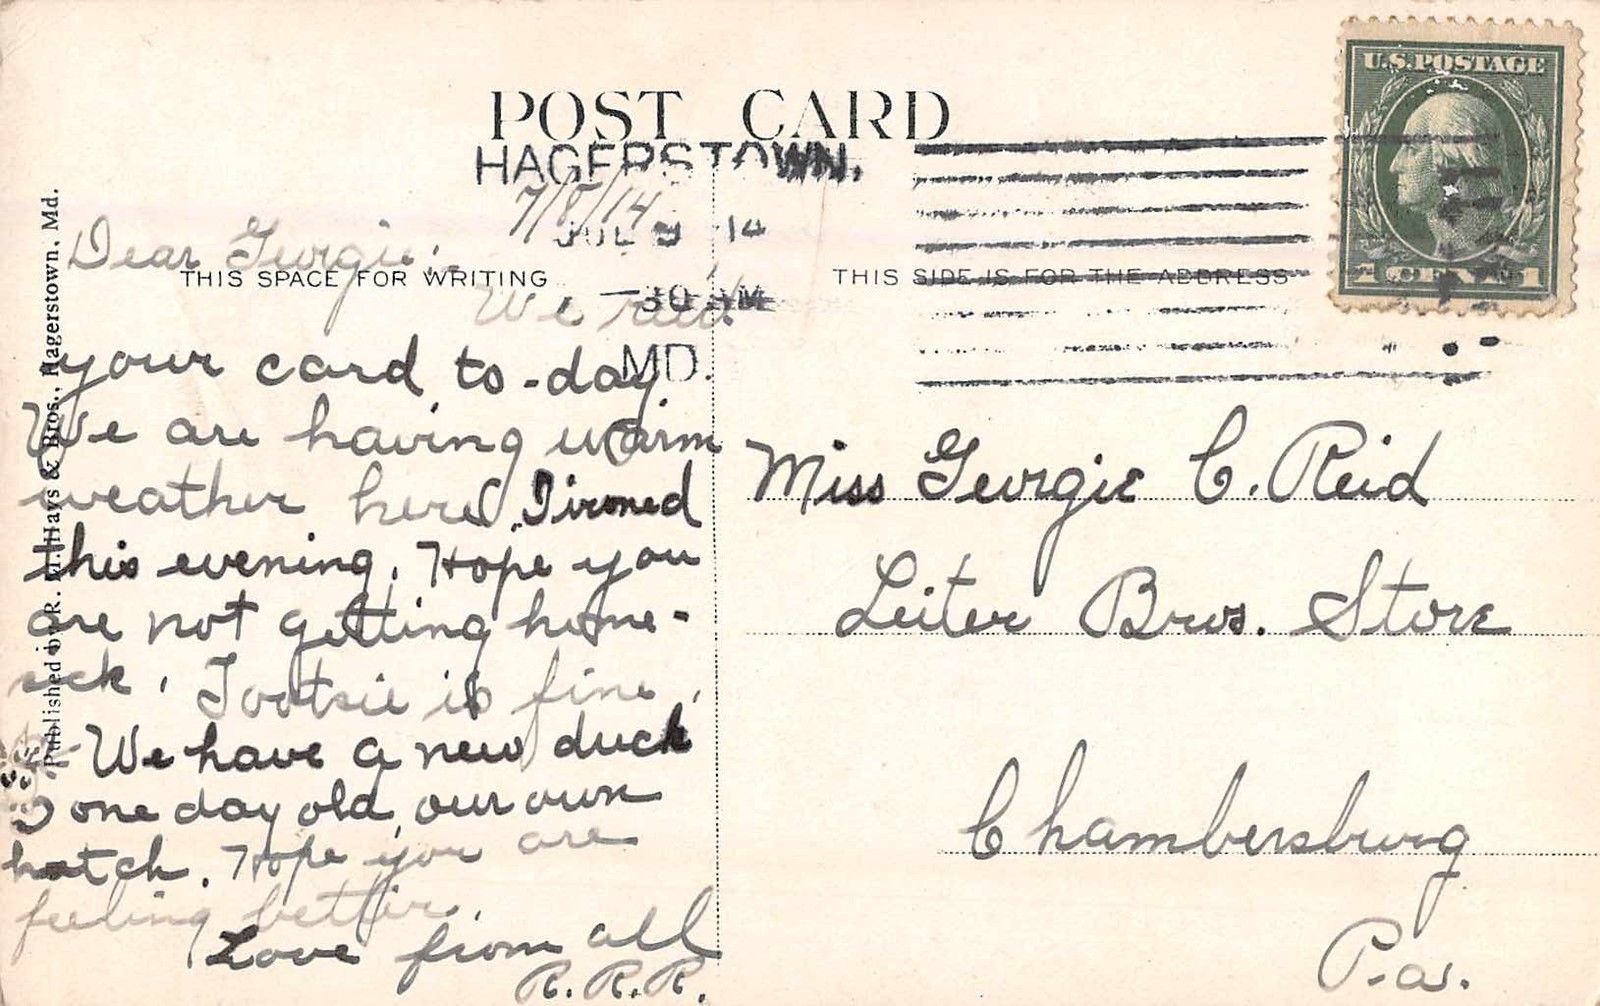 POST CARD
HAGERSTOWN,
7/8/14
JUL 9 14
Dear Georgie:-
THIS SPACE FOR WRITING
THIS SIDE IS FOR THE ADDRESS
-30 AM
We rec'd
your card to-day
MD.
We are having warm
weather here. I ironed
this evening. Hope you
are not getting home-
sick. Tootsie is fine.
We have a new duck
one day old, our own
hatch. Hope you are
feeling better.
Love from all
R.R.R.
Miss Georgie C. Reid
Leiter Bros. Store
Chambersburg
Pa.
U.S. POSTAGE
1 CENT 1
Published by R. M. Hays & Bros., Hagerstown, Md.